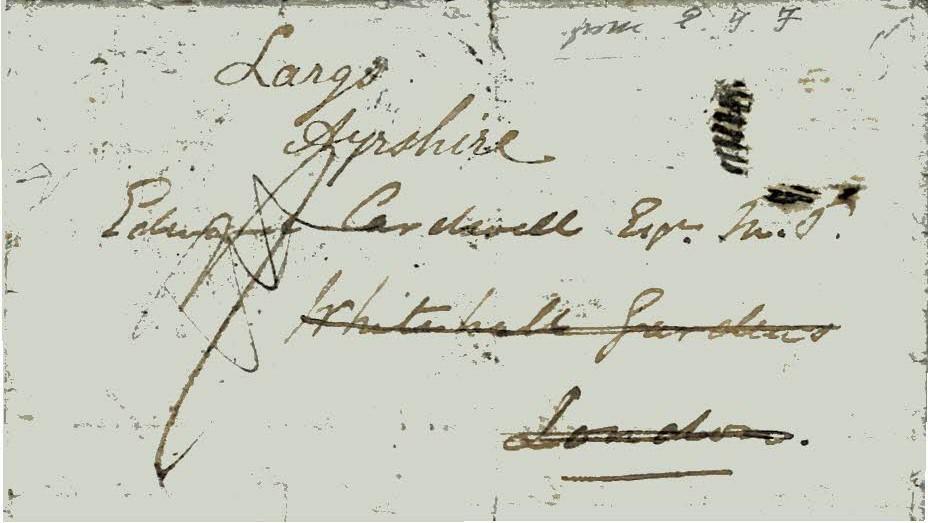 from
Largs
Ayrshire
Edward Cardwell Esqr. M.P.
Whitehall Gardens
London.